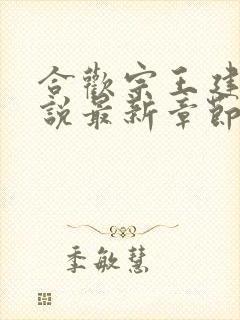 合歡宗王建
說最新章節
季敏慧